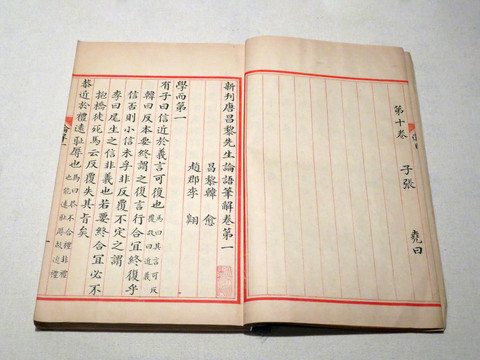 第十卷 子張 堯曰
新刊唐昌黎先生論語筆解卷第一
昌黎韓愈
趙郡李翱
學而第一
有子曰信近於義言可復也
馬曰其言可反
覆故曰近義
韓曰反本要終謂之復言行合宜終復乎
信否則小信未孚非反覆不定之謂
李曰尾生之信非義也若要終合宜必不
抱橋徒死馬云反覆失其旨矣
恭近於禮遠恥辱也
馬曰恭不合禮非禮
也能遠恥辱故近禮